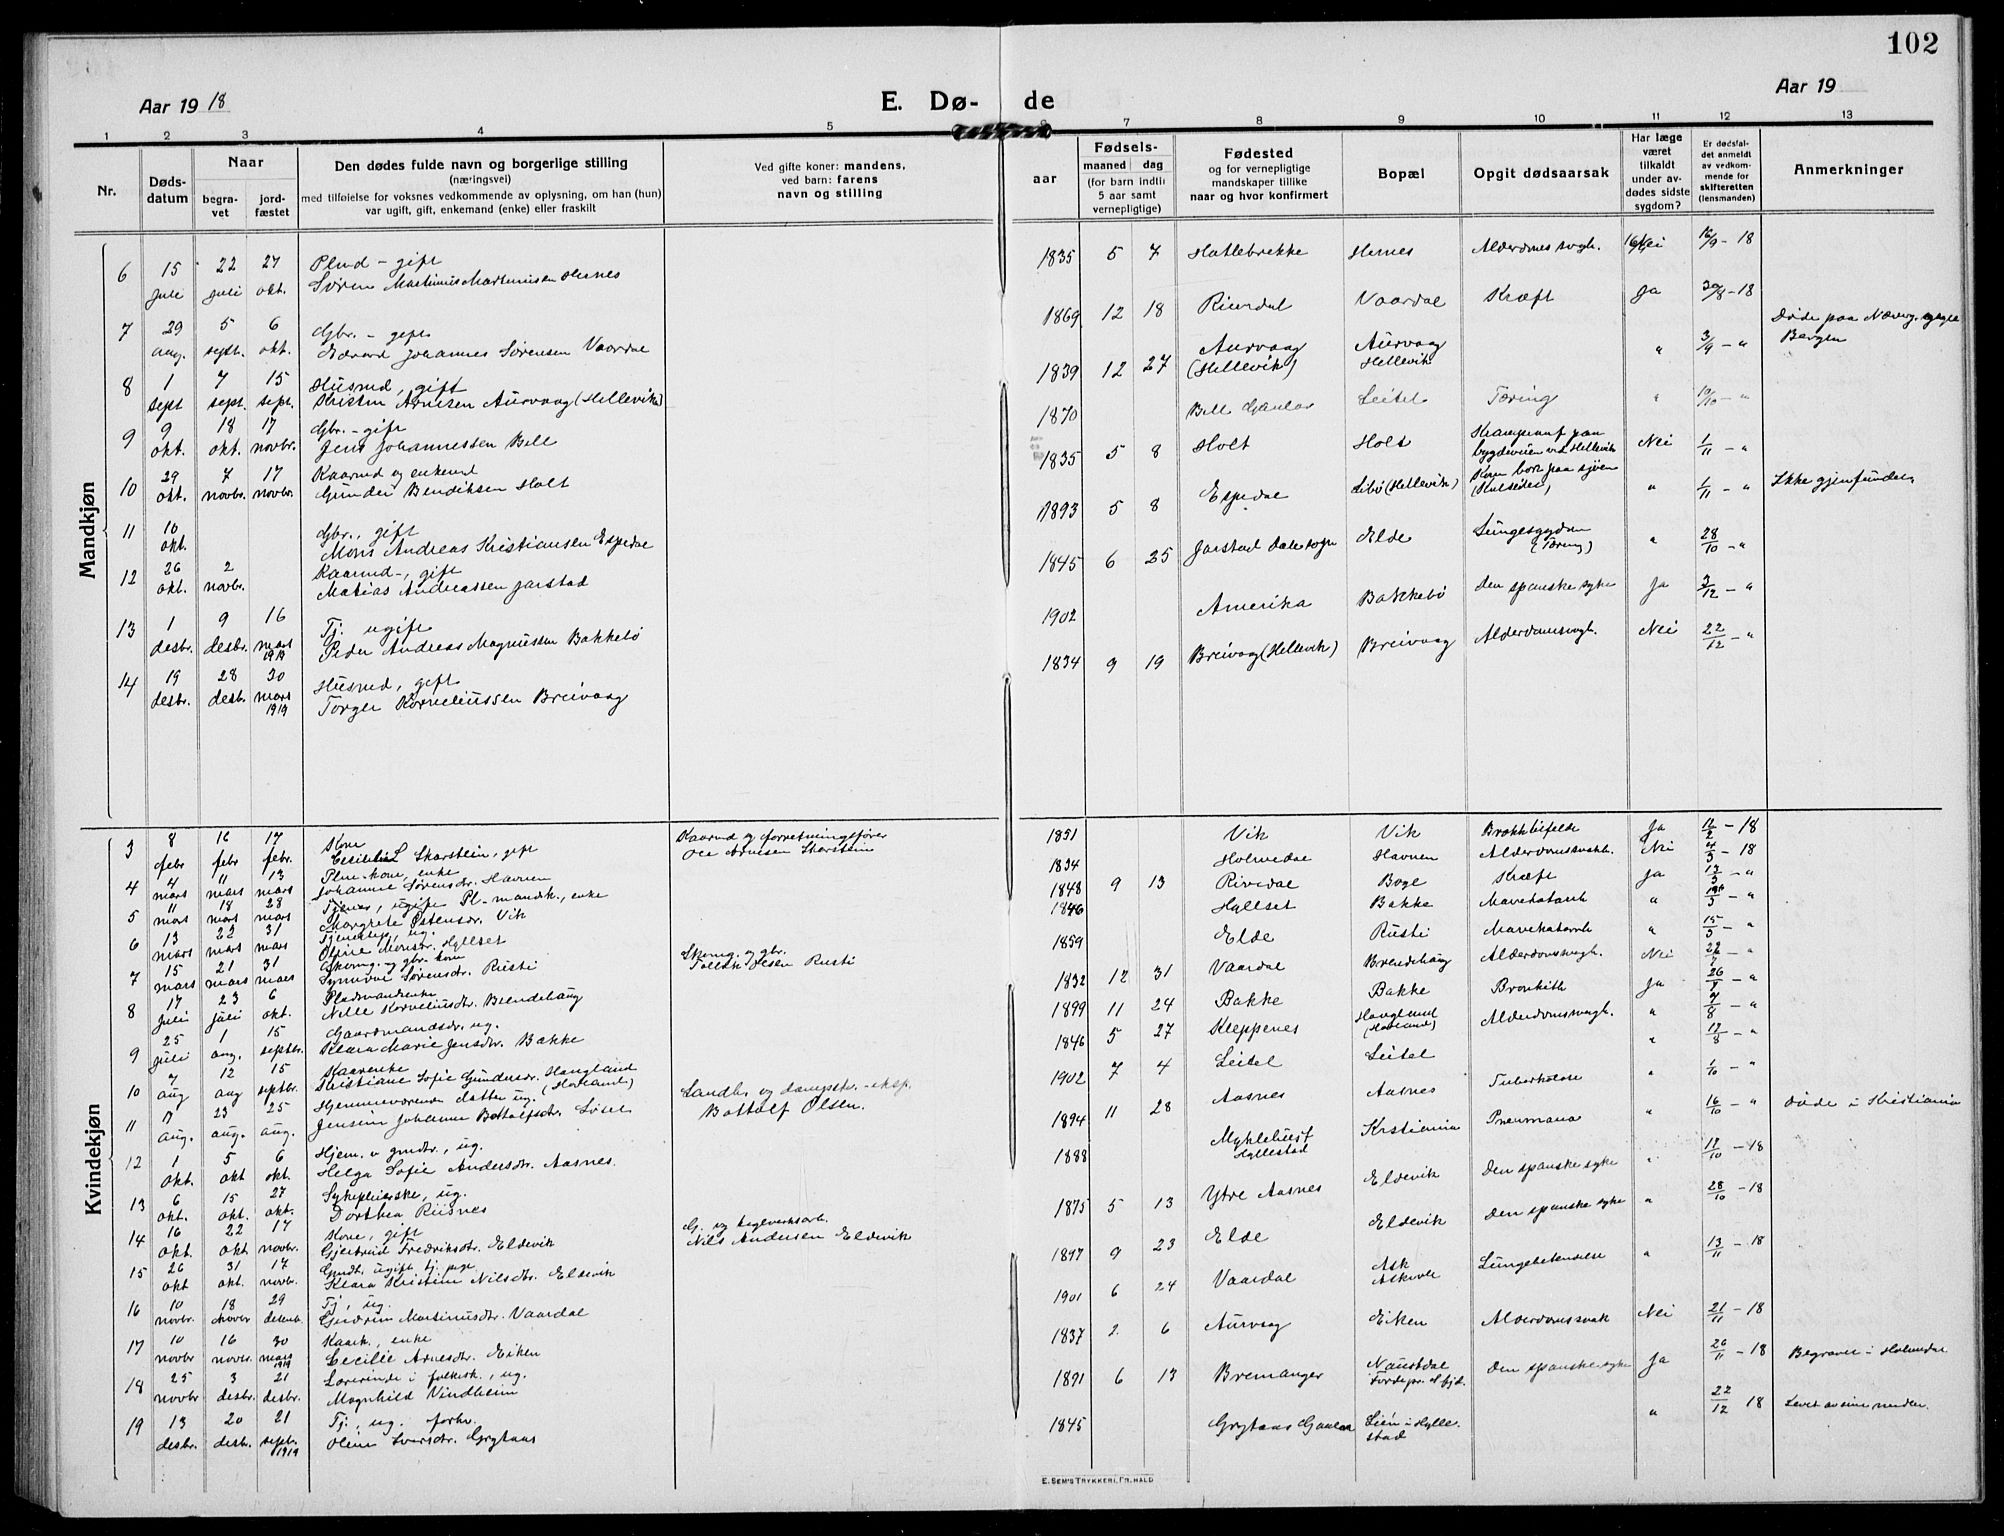 102
Aar 1918
E. Dø-
de
Aar 19
1 2 3 4 5 6 7 8 9 10 11 12 13
Nr.
Døds-
datum
Naar
begra-
vet
jord-
fæstet
Den dødes fulde navn og borgerlige stilling
(næringsvei)
med tilføielse for voksnes vedkommende av oplysning, om han (hun)
var ugift, gift, enkemand (enke) eller fraskilt
Ved gifte koner: mandens,
ved barn: farens
navn og stilling
Fødsels-
aar
maaned dag
(for barn indtil
5 aar samt
vernepligtige)
Fødested
og for vernepligtige
mandskaper tillike
naar og hvor konfirmert
Bopæl
Opgit dødsaarsak
Har læge
været
tilkaldt
under av-
dødes sidste
sygdom?
Er dødsfal-
det anmeldt
av vedkom-
mende for
skifteretten
(lensmanden)
Anmerkninger
Mandkjøn
6 15 juli 22 juli 27 okt. Plmd - gift
Søren Martinus Martinusen Hernes
1835 5 7 Hatlebrekke Hernes Alderdomssvagh. Nei 16/9-18
7 29 aug. 5 sept. 6 okt. Gbr. - gift
Edvard Johannes Sørensen Vaardal
1869 12 18 Rivedal Vaardal Kræft Ja 30/8-18
Døde paa Næverg. sygeh.
Bergen
8 1 sept 7 sept. 15 sept. Husmd, gift
Kristen Arnesen Aurvaag (Hellevik)
1839 12 27 Aurvaag (Hellevik) Aurvaag Hellevik " 3/9 - "
9 9 okt. 18 okt. 17 novbr. Gbr. - gift
Jens Johannessen Bell
1870 Bell Gaular Leitel Tæring " 10/10 - "
10 29 okt. 7 novbr. 17 novbr. Kaarmd og enkemd
Gunder Bendiksen Holt
1835 5 8 Holt Holt bygdeveien ved Hellevik Nei 1/11 - "
11 10 okt. Gbr., gift
Mons Andreas Kristiansen Espedal
1893 5 8 Espedal Libø (Hellevik) Kom bort paa sjøen " 1/11 - " Ikke gjenfunden
12 26 okt. 2 novbr. Kaarmd -, gift
Matias Andreassen Jarstad
1845 6 25 Jarstad Dale sogn Elde Lungesygdom (Tæring) " 28/10 - "
13 1 desbr. 9 desbr. 16 mars 1919 Tj. ugift
Peder Andreas Magnussen Bakkebø
1902 Amerika Bakkebø Den spanske syke Ja 3/12 - "
14 19 desbr. 28 desbr. 30 mars 1919 Husmd, gift
Torger Korneliussen Breivaag
1834 9 19 Breivaag (Hellevik) Breivaag Alderdomssvagh. Nei 22/12 - "
Kvindekjøn
3 8 febr 16 febr 17 febr. Kone
Skarstein, gift
Kaarmd og forretningsfører
Ole Arnesen Skarstein
1851 Vik Vik Ja 12/2 - 18
4 4 mars 11 mars 13 mars Plm. kone, enke
Johanne Sørensdr. Havnen
1834 Holmedal Havnen Alderdomssvakh. Nei 4/3 - 18
5 11 mars 18 mars 28 mars Pl-mandk., enke
Margrete Østensdr. Vik
1848 9 13 Rivedal Boge Kræft Ja
6 13 mars 22 mars 31 mars ug.
Oline Monsdr. Hyllset
1846 Hyllset Bakke Mavekatarrh "
7 15 mars 21 mars 31 mars Skomg. og gbr. kone
Synnøve Sørensdr. Rusti
Skomg. og gbr.
Tollak Olsen Rusti
1859 Elde Rusti Mavekatarrh " 15/3 - "
8 17 juli 23 juli 6 okt. Pladsmandsenke
Nille Korneliusdr. Brendehaug
1832 12 31 Vaardal Brendehaug Alderdomssvagh. Nei 22/7 - "
9 25 juli 1 aug. 15 septbr. Gaardmandsdr. ug.
Klara Marie Jensdr. Bakke
1899 11 24 Bakke Bakke Bronkith Ja 26/7 - "
10 7 aug 12 aug 15 septbr. Kaarenke
Kristiane Sofie Gundersdr. Haugland
1846 5 27 Kleppenes Haugland Alderdomssvagh. " 9/8 - "
11 17 aug. 23 aug. 25 aug. Hjemmeværende datter ug.
Jensine Johanne Bottolfsdr. Leitel
Landh. og dampsk. - eksp.
Bottolf Olsen.
1902 7 4 Leitel Leitel " 17/8 - "
12 1 okt. 5 okt 6 okt. Hjem. v gmdtr., ug.
Helga Sofie Andersdr. Aasnes.
1894 11 28 Aasnes Aasnes Tuberkolose " 1/10 - "
13 6 okt. 15 okt. 27 okt. Sykepleierske, ug.
Dorthea Riisnes
1888 Myklebust Hyllestad Krstiania Pneumonia " 16/10 - " Døde i Kristiania
14 16 okt 22 okt 17 novbr. Kone, gift
Gjertrud Fredriksdr. Eldevik
G. og teglverksarb.
Nils Andersen Eldevik
1875 5 13 Ytre Aasnes Eldevik Den spanske syke " 17/10 - 18
15 26 okt 31 okt. 17 novbr. Gmdt. ugift tj. pige
Klara Kristine Nilsdtr. Eldevik
1897 9 23 Elde Eldevik Den spanske syke " 28/10 - 18
16 10 novbr. 18 novbr 29 desemb. Tj, ug.
Gudrun Martinusdtr. Vaardal
1901 6 24 Vaardal Ask Askvoll Lungebetendelse " 13/11 - 18
17 10 novbr 16 novbr. 30 mars 1919 Kaark., enke
Cecilie Arnesdtr. Eiken
1837 2 6 Aurvaag Eiken Alderdomssvak Nei 21/11 - 18
18 25 novbr 3 desbr. 21 desbr. Lærerinde i folkesk., ug.
Magnhild Vindheim
1891 6 13 Bremanger Naustdal Førdepr. Sfjd. Den spanske syke Ja 26/11 - 18 Begravet i Holmedal
19 13 desbr. 20 desb. 21 septbr. 1919 Tj, ug. forhv.
Oline Ivarsdtr. Grytaas
1845 Grytaas Gaular Lien i Hylle-
stad " 22/12 18 Levet av sine midler.
E. SEM'S TRYKKERI, FR.HALD